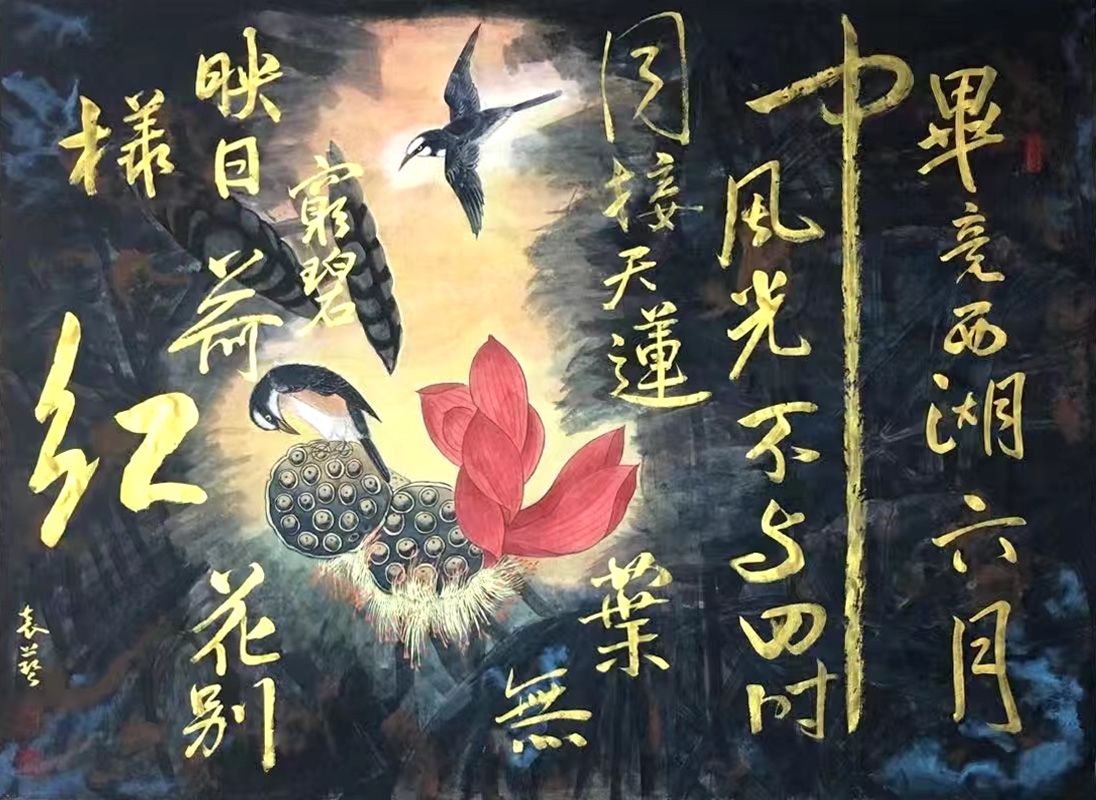 畢竟西湖六月
中
風光不与四时
同接天蓮葉
無
窮碧
映日荷花别
樣紅
袁